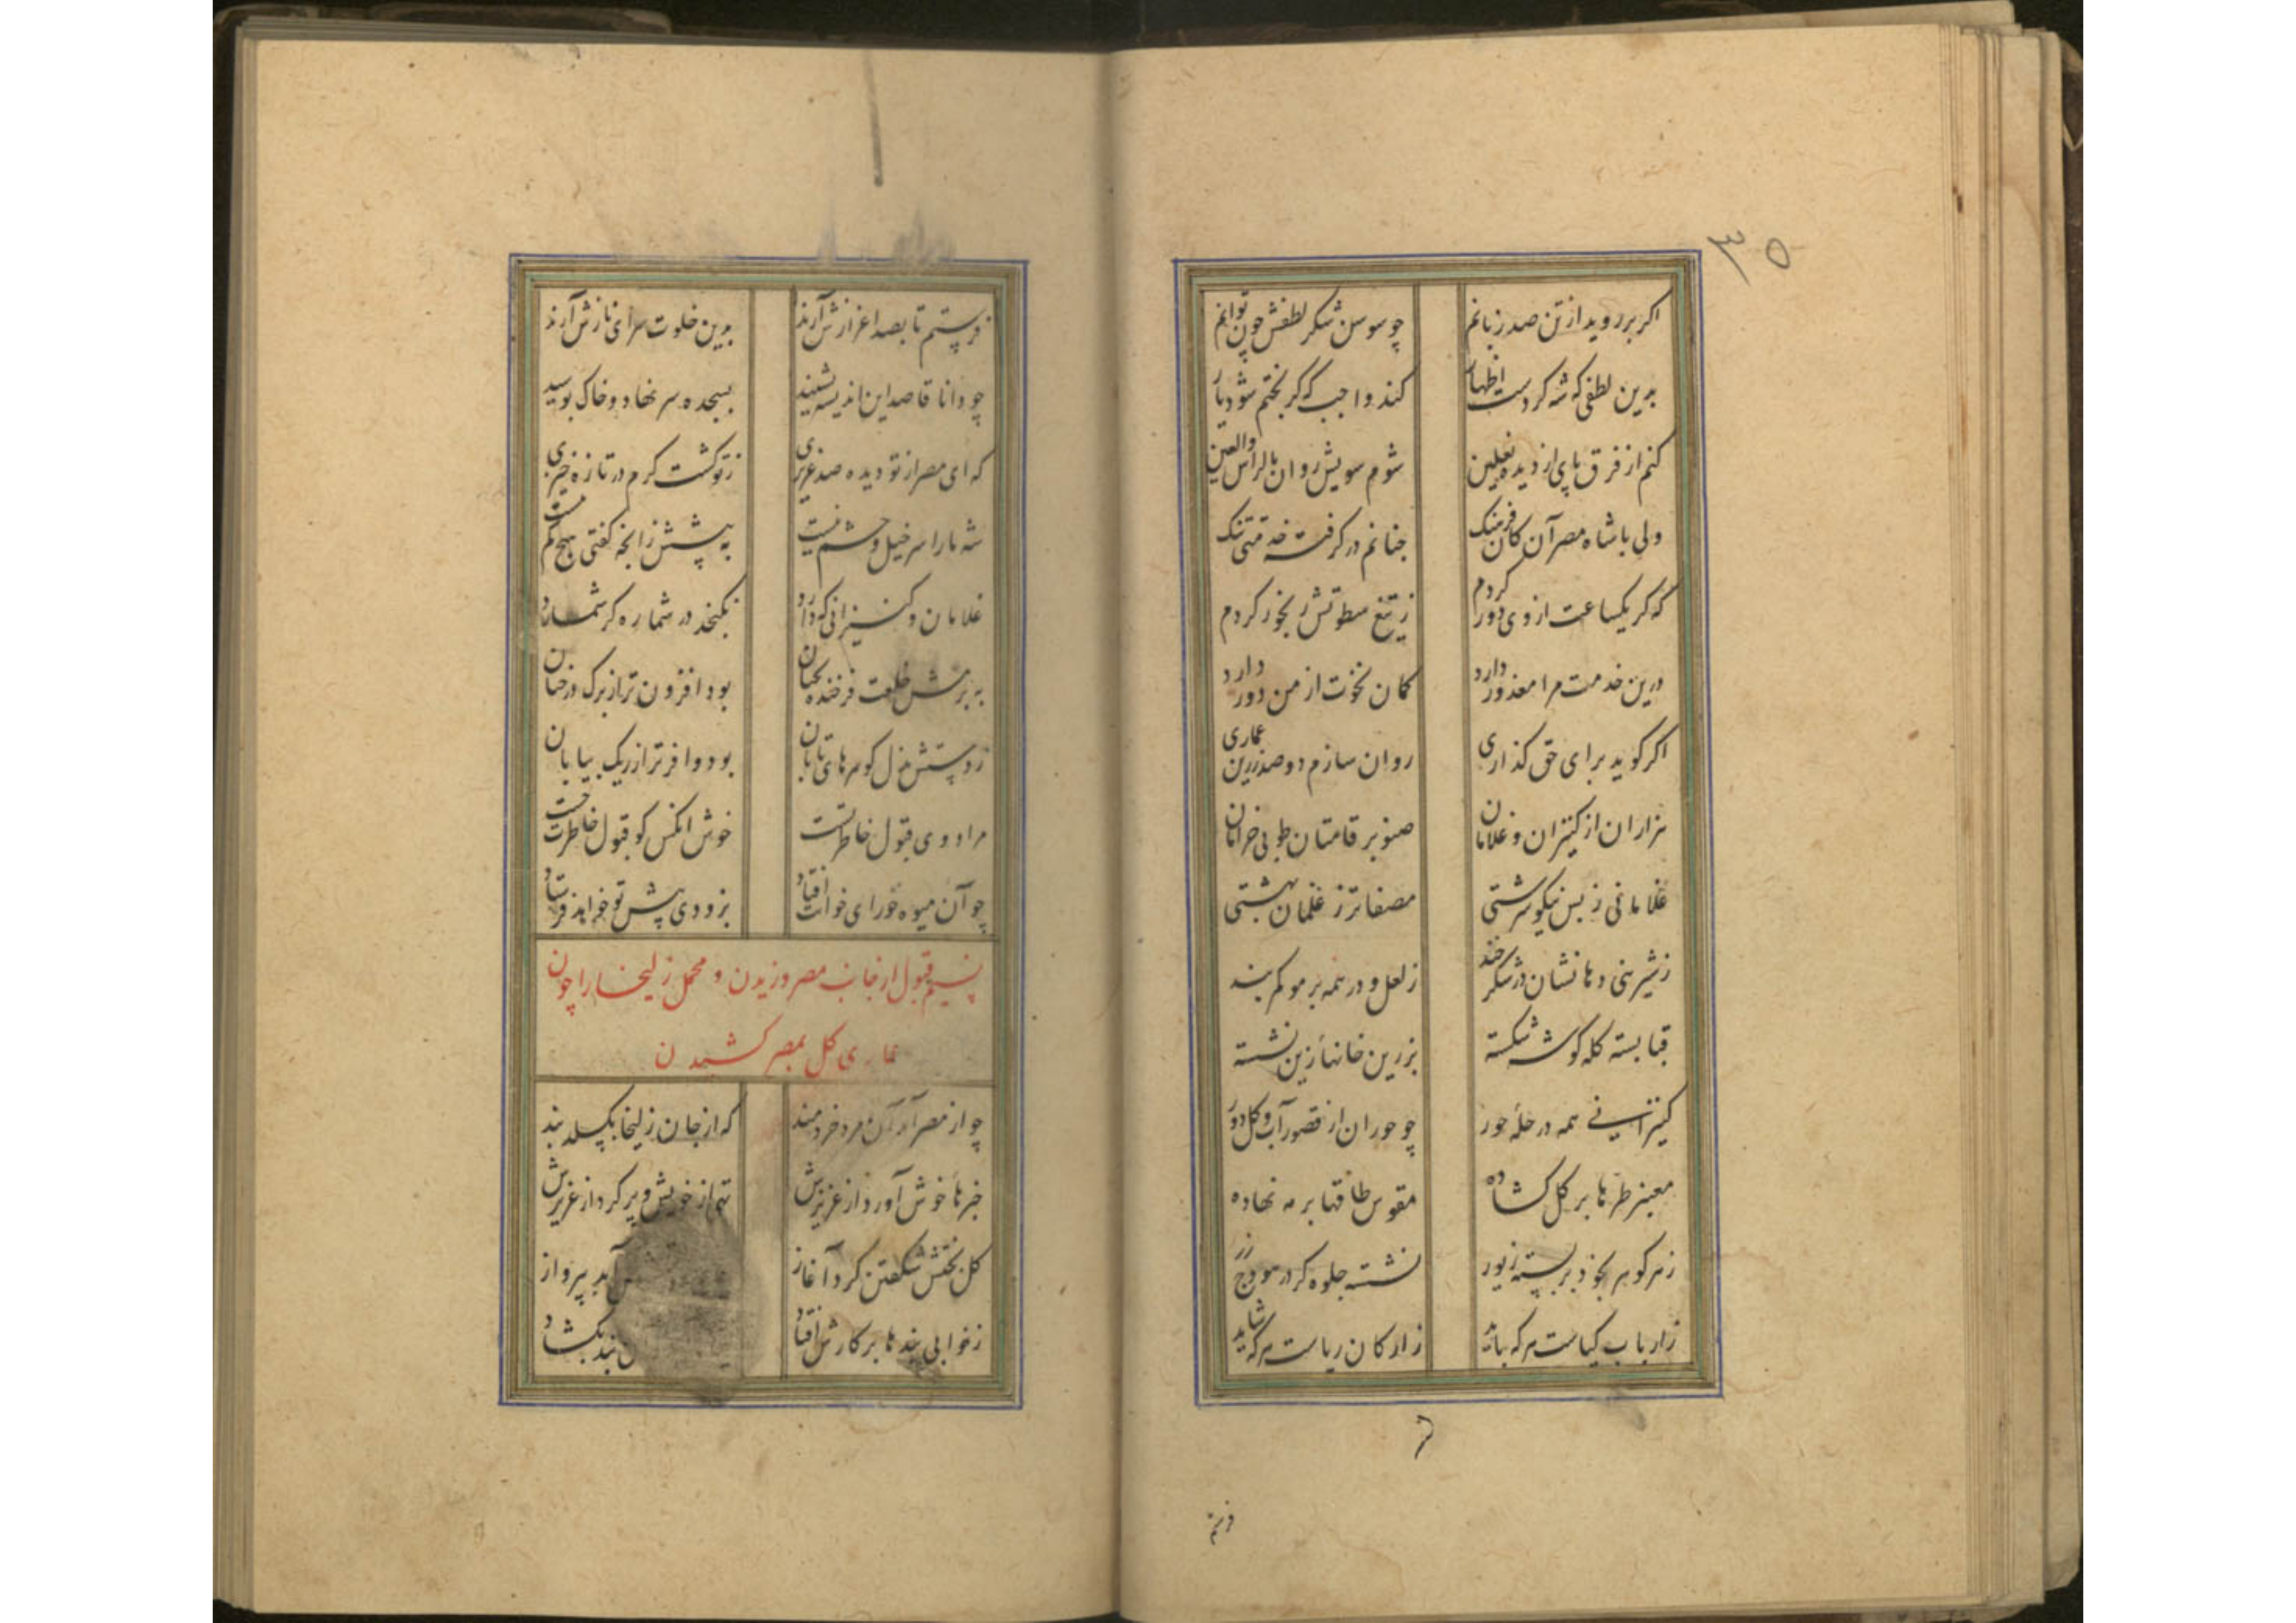 ۳۵
اگر بر روید از تن صد زبانم چو سوسن شکر لطفش چون توانم
بدین لطفی که شه کردست اظهار کند واجب که گر بختم شود یار
کنم از فرق پای از دیده نعلین شوم سویش روان بالراس والعین
ولی با شاه مصر آن کان فرهنک چنانم در گرفته خدمتی تنک
که گر یکساعت از وی دور گردم ز تیغ سطوتش رنجور گردم
درین خدمت مرا معذور دارد کمان نخوت از من دور دارد
اگر گوید برای حق گذاری روان سازم دو صد زرین عماری
هزاران از کنیزان و غلامان صنوبر قامتان طوبی خرامان
غلامانی ز بس نیکو سرشتی مصفاتر ز غلمان بهشتی
ز شیرینی دهانشان در شکر خند ز لعل و در همه بر مو کمر بند
قبا بسته کله گوشه شکسته بزرین خانهٔ زین نشسته
کنیزانی همه در حلهٔ حور چو حوران از قصور آب و گل دور
معنبر طره ها بر گل گشاده مقوس طاقها بر مه نهاده
ز هر گوهر بخود بربسته زیور نشسته جلوه گر در هودج زر
ز ارباب کیاست هر که باید ز ارکان ریاست هر که شاید
فرستم
فرستم تا بصد اعزازش آرند بدین خلوت سرای نازش آرند
چو دانا قاصد این اندیشه بشنید بسجده سر نهاد و خاک بوسید
که ای مصر از تو دیده صد عزیزی ز تو کشت کرم در تازه خیزی
شه ما را سر خیل و حشم نیست به پیشش ز انچه گفتی هیچ کم نیست
غلامان و کنیزانی که دارد نگنجد در شماره گر شمارد
به بزمش خلعت فرخنده بختان بود افزون تر از برک درختان
ز دستش بذل گوهرهای تابان بود وافرتر از ریک بیابان
مراد وی قبول خاطر تست خوش انکس کو قبول خاطرت جست
چو آن میوه خورای خوانت افتاد بزودی پیش تو خواهد فرستاد
نسیم قبول از جانب مصر وزیدن و محمل زلیخا را چون
عماری گل بمصر کشیدن
چو از مصر آمد آن مرد خردمند که از جان زلیخا بگسلد بند
خبرها خوش آورد از عزیزش تهی از خویش و پر کرد از عزیزش
گل بختش شکفتن کرد آغاز آمد بپرواز
ز خوابی بندها بر کارش افتاد بند بگشاد